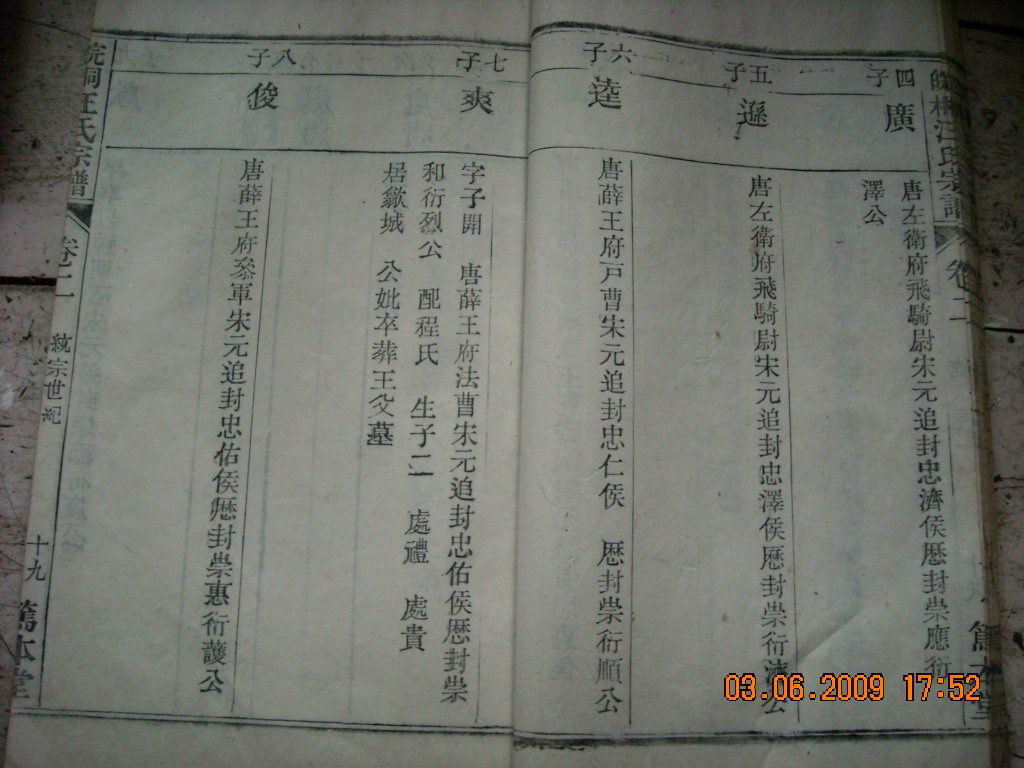 皖桐汪氏宗譜
卷二
篤本堂
四子
廣
唐左衛府飛騎尉宋元追封忠濟侯歷封崇應衍
澤公
五子
遜
唐左衛府飛騎尉宋元追封忠澤侯歷封崇衍濟公
六子
逵
唐薛王府戸曹宋元追封忠仁侯 歷封崇衍順公
七子
爽
字子開 唐薛王府法曹宋元追封忠佑侯歷封崇
和衍烈公 配程氏 生子二 處禮 處貴
居歙城 公妣卒葬王父墓
八子
俊
唐薛王府叅軍宋元追封忠佑侯歷封崇惠衍護公
皖桐汪氏宗譜
卷二
統宗世紀
十九
篤本堂
03.06.2009 17:52